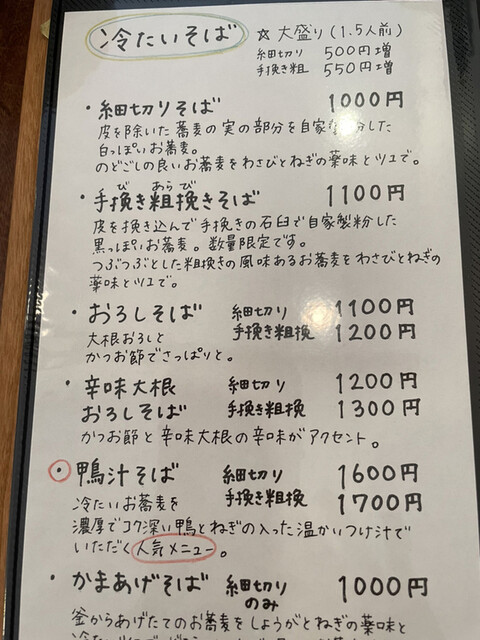 冷たいそば
☆ 大盛り(1.5人前)
細切り 500円増
手挽き粗 550円増
・細切りそば 1000円
皮を除いた蕎麦の実の部分を自家製粉した
白っぽいお蕎麦。
のどごしの良いお蕎麦をわさびとねぎの薬味とツユで。
び あらび
・手挽き粗挽きそば 1100円
皮を挽き込んで手挽きの石臼で自家製粉した
黒っぽいお蕎麦。数量限定です。
つぶつぶとした粗挽きの風味あるお蕎麦をわさびとねぎの
薬味とツユで。
・おろしそば 細切り 1100円
手挽き粗挽 1200円
大根おろしと
かつお節でさっぱりと。
・辛味大根 細切り 1200円
おろしそば 手挽き粗挽 1300円
かつお節と辛味大根の辛味がアクセント。
・鴨汁そば 細切り 1600円
手挽き粗挽 1700円
冷たいお蕎麦を
濃厚でコク深い鴨とねぎの入った温かいつけ汁で
いただく人気メニュー。
・かまあげそば 細切り 1000円
のみ
釜からあげたてのお蕎麦をしょうがとねぎの薬味と